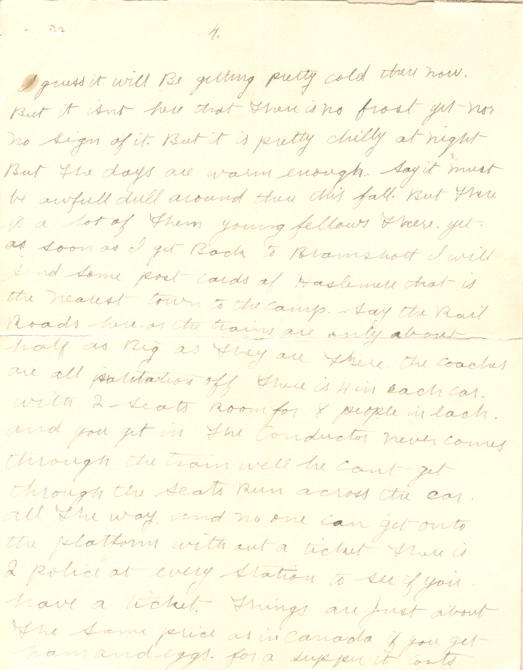 4.
I guess it will Be getting pretty cold there now.
But it isnt here that There is no frost yet nor
no sign of it. But it is pretty chilly at night
But The days are warm enough. Say it must
be awfull dull around there this fall. But There
is a lot of Them young fellows There. yet.
as soon as I get Back to Bramshott I will
send some post cards of Haslemere that is
the nearest town to the camp. Say the Rail
Roads here or the trains are only about
half as Big as They are There. the coaches
are all off There is 4 in each car.
with 2 seats Room for 8 people in each.
and you get in The Conductor never comes
through the train well he cant get
through the seats Run across the car.
all The way and no one can get onto
the platform without a ticket There is
2 police at every station to see if you
have a ticket. Things are just about
The same price as in Canada if you get
ham and eggs. for a supper it